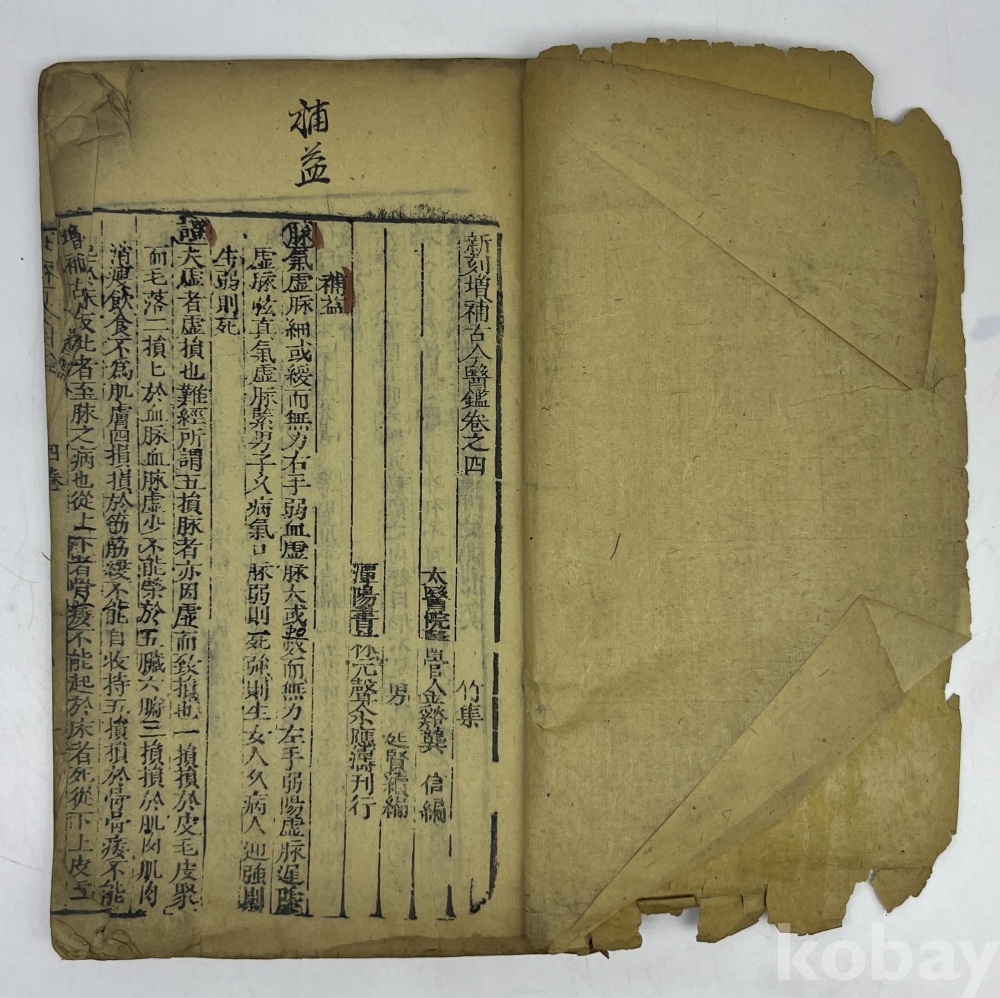 補益
新刻增補古今醫鑑卷之四
竹集
太醫院醫官金谿龔 信編
男 延賢續編
潭陽書林元聲余應灣刊行
補益
脉氣虛脉細或緩而無力右手弱血虛脉大或數而無力左手弱陽虛脉遲陰
虛脉弦真氣虛脉緊男子久病氣口脉弱則死強則生女人久病人迎強則
生弱則死
證夫虛者虛損也難經所謂五損脉者亦因虛而致損也一損損於皮毛皮聚
而毛落二損損於血脉血脉虛少不能榮於五臟六腑三損損於肌肉肌肉
消瘦飲食不為肌膚四損損於筋筋緩不能自收持五損損於骨骨痿不能
起於床反此者至脉之病也從上下者骨痿不能起於床者死從下上皮
增補古今
四卷
kobay